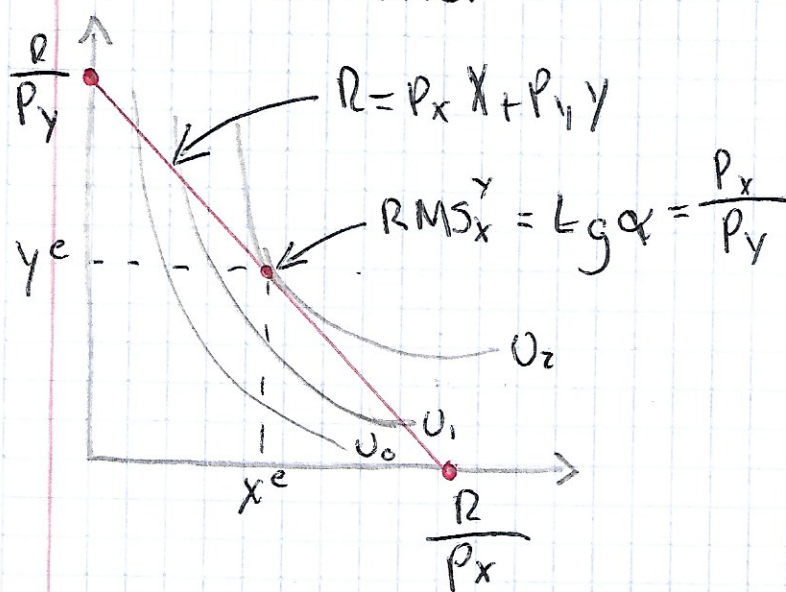 R/Py
R = Px X + Py Y
RMSxʸ = tg α = Px/Py
yᵉ
U₂
U₁
U₀
xᵉ
R/Px